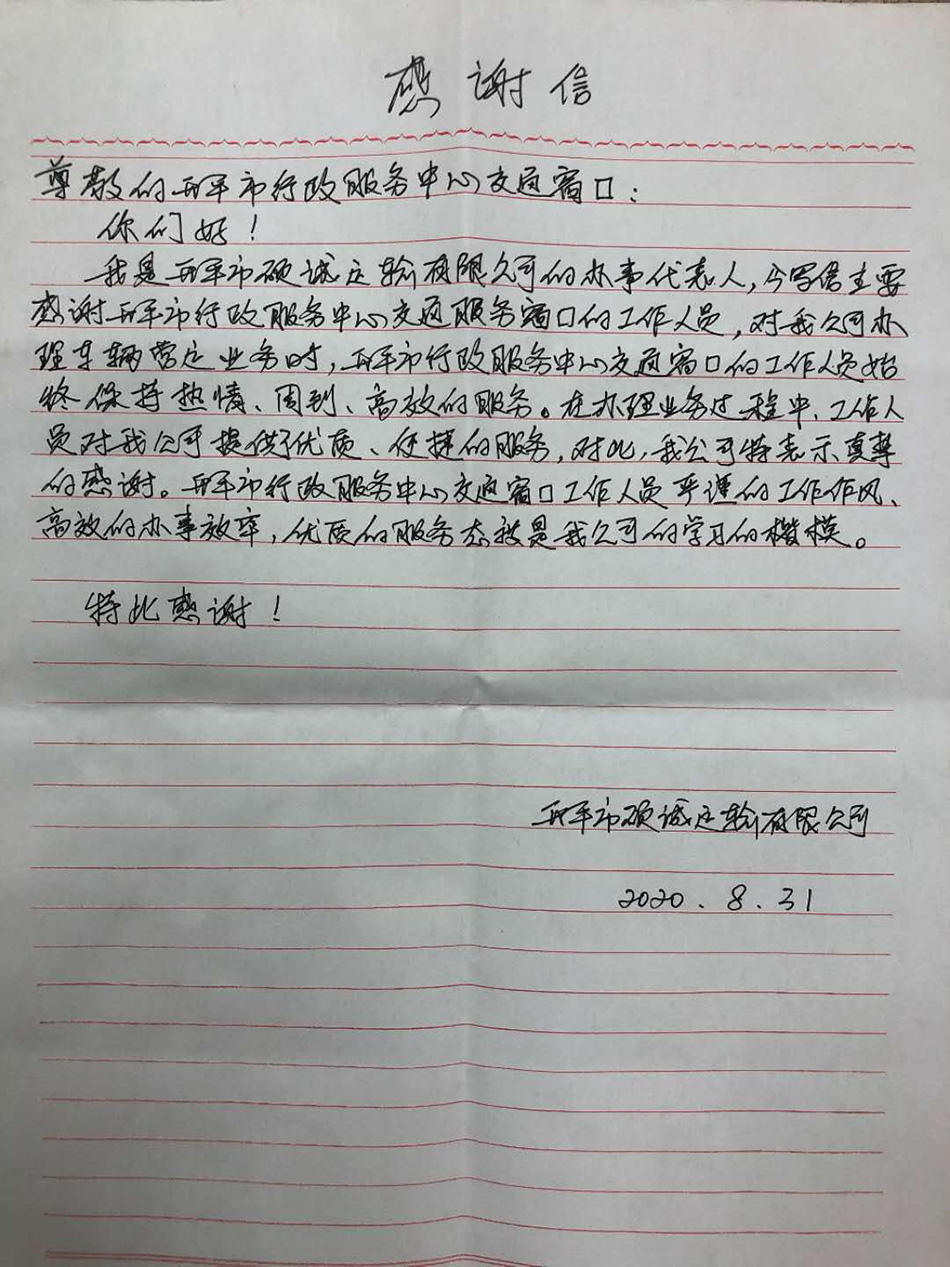 感谢信
尊敬的开平市行政服务中心交通窗口：
你们好！
我是开平市硕诚运输有限公司的办事代表人，今写信主要
感谢开平市行政服务中心交通服务窗口的工作人员，对我公司办
理车辆营运业务时，开平市行政服务中心交通窗口的工作人员始
终保持热情、周到、高效的服务。在办理业务过程中、工作人
员对我公司提供了优质、便捷的服务，对此，我公司特表示真挚
的感谢。开平市行政服务中心交通窗口工作人员严谨的工作作风、
高效的办事效率，优质的服务态度是我公司的学习的楷模。
特此感谢！
开平市硕诚运输有限公司
2020.8.31